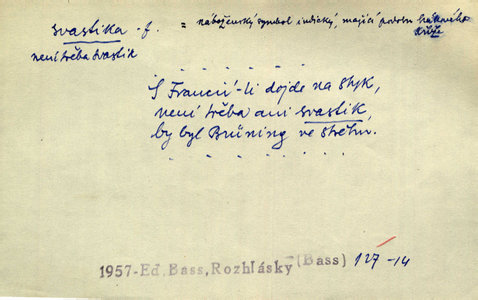 svastika -f. = náboženský symbol indický, mající podobu hákového
kříže
není třeba svastik
S Francií-li dojde na styk,
není třeba ani svastik,
by byl Brüning ve střehu.
1957-Ed. Bass, Rozhlásky (Bass) 127 -14